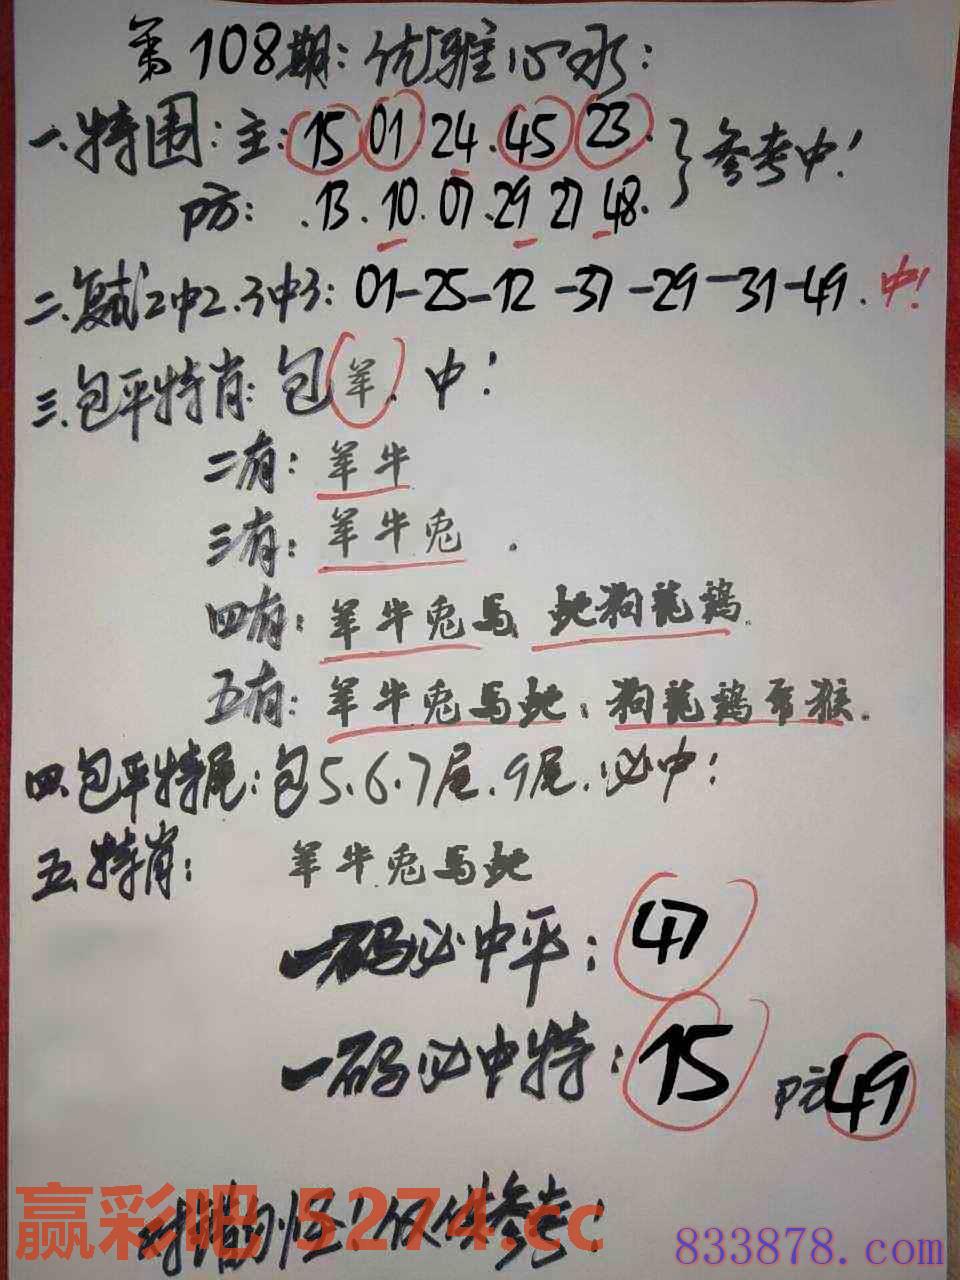 第108期:优雅心水:
一.特围:主:15 01 24.45 23.}参考中!
防:.13.10.07.29 27 48.
二.复试2中2.3中3:01-25-12-37-29-31-49.中!
三.包平特肖:包羊.中!
二有:羊牛
三有:羊牛兔.
四有:羊牛兔马 蛇狗龙鸡.
五有:羊牛兔马蛇:狗龙鸡 猴.
四.包平特尾:包5.6.7尾.9尾.必中!
五.特肖:羊牛兔马蛇
一码必中平:47
一码必中特:15 防49
对错勿怪!仅供参考!
赢彩吧 5274.cc
833878.com